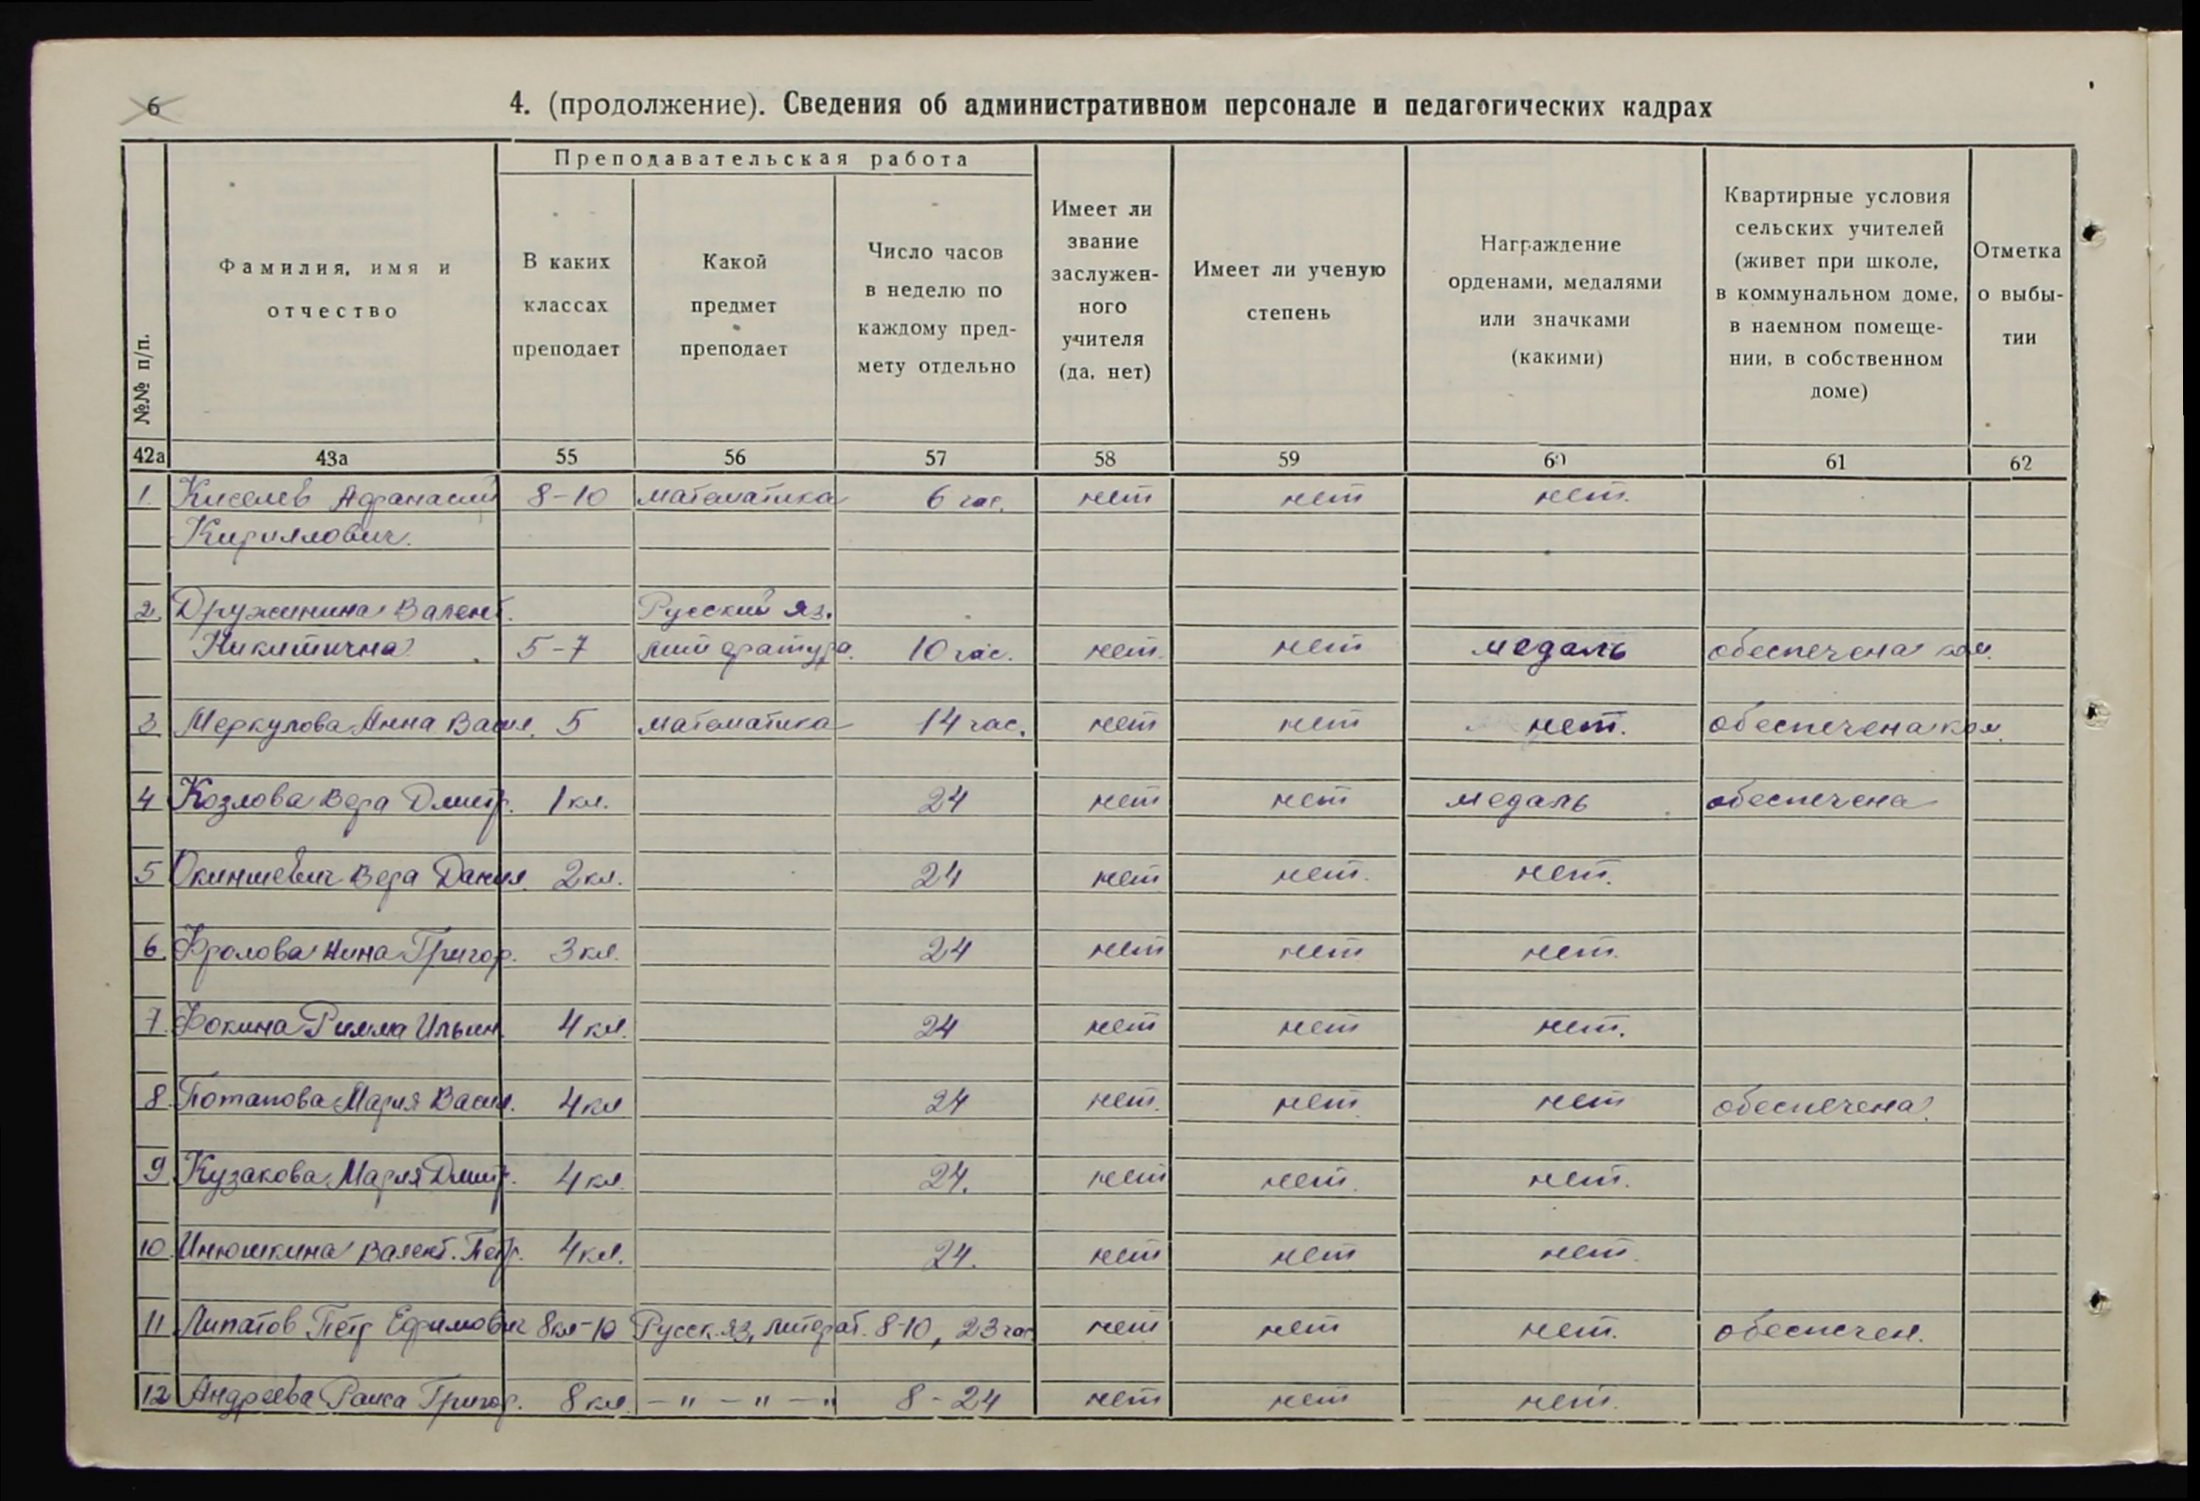 6
4. (продолжение). Сведения об административном персонале и педагогических кадрах
№№ п/п.
Фамилия, имя и
отчество
Преподавательская работа
В каких
классах
преподает
Какой
предмет
преподает
Число часов
в неделю по
каждому пред-
мету отдельно
Имеет ли
звание
заслужен-
ного
учителя
(да, нет)
Имеет ли ученую
степень
Награждение
орденами, медалями
или значками
(какими)
Квартирные условия
сельских учителей
(живет при школе,
в коммунальном доме,
в наемном помеще-
нии, в собственном
доме)
Отметка
о выбы-
тии
42а 43а 55 56 57 58 59 60 61 62
1. Киселев Афанасий 8-10 математика 6 час. нет нет нет.
Кириллович.
2. Дружинина Валент. Русский яз.
Никитична 5-7 литература. 10 час. нет. нет медаль обеспечена ком.
3 Меркулова Анна Васил. 5 математика 14 час. нет нет нет. обеспечена ком.
4 Козлова Вера Дмитр. 1 кл. 24 нет нет медаль обеспечена
5 Окиншевич Вера Данил. 2 кл. 24 нет нет. нет.
6. Фролова Нина Григор. 3 кл. 24 нет нет нет.
7. Фокина Римма Ильин. 4 кл. 24 нет нет нет.
8 Потапова Мария Васил. 4 кл 24 нет. нет. нет обеспечена.
9 Кузакова Мария Дмитр. 4 кл. 24. нет нет. нет.
10. Инюшкина Валент. Петр. 4 кл. 24. нет нет нет.
11 Липатов Петр Ефимович 8кл-10 Русск. яз, литерат. 8-10, 23 час нет нет нет. обеспечен.
12 Андреева Раиса Григор. 8 кл. — " — " — " 8 - 24 нет нет нет.